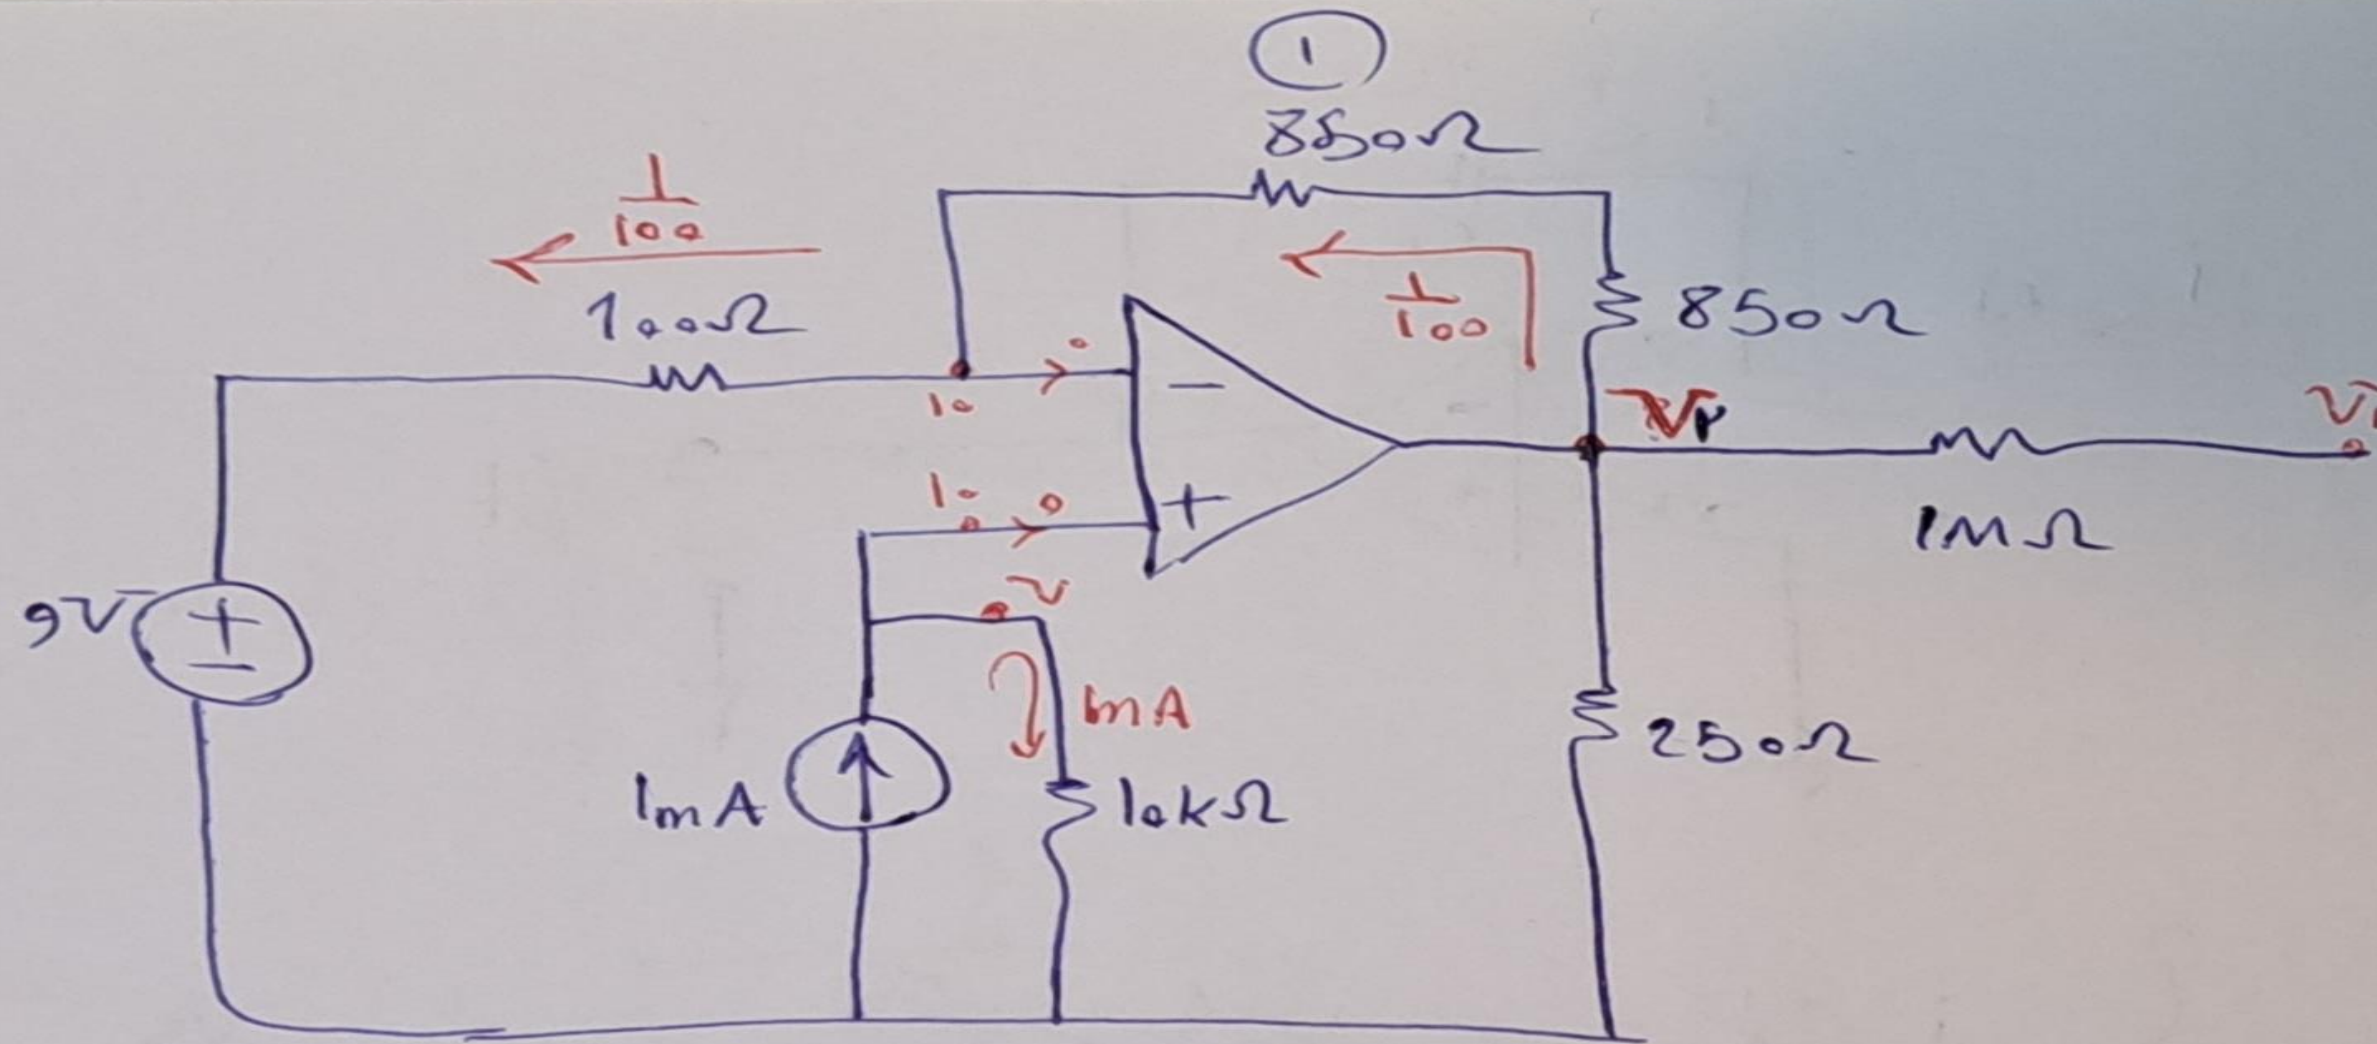 1
850Ω
1/100
100Ω
850Ω
1/100
10
0
−
VP
10
0
+
1MΩ
9V
+
−
V
1mA
1mA
10kΩ
250Ω